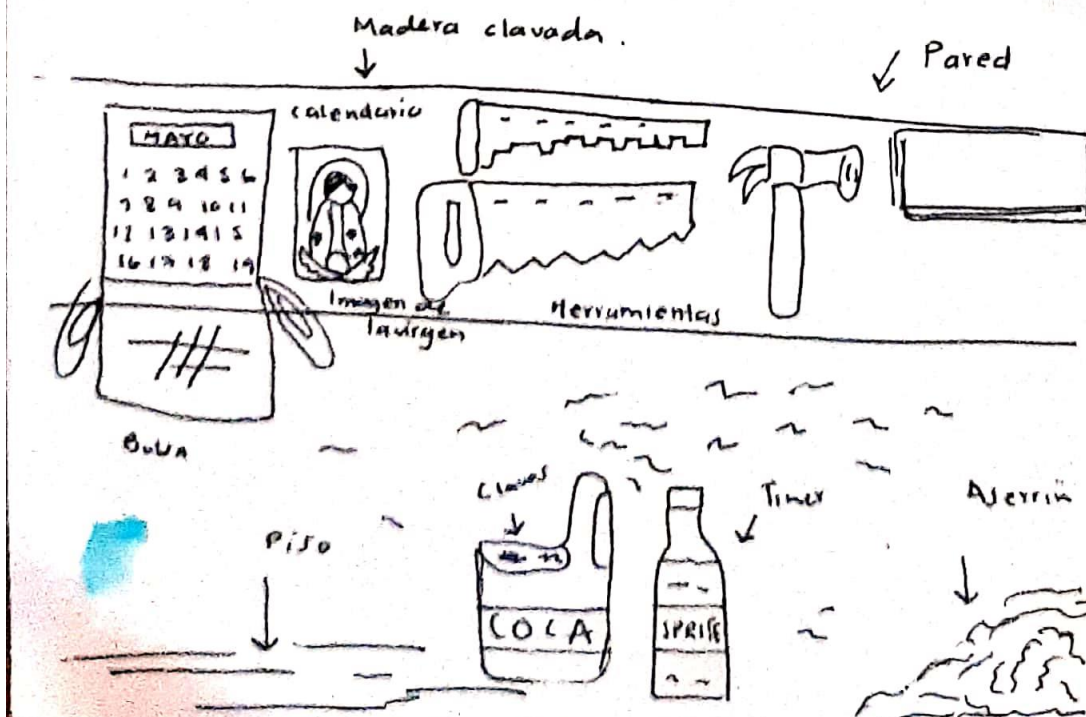 Madera clavada.
Pared
calendario
MAYO
1 2 3 4 5 6
7 8 9 10 11
12 13 14 15
16 17 18 19
Imagen de
la virgen
Herramientas
Clavos
Tiner
Aserrin
Piso
COCA
SPRITE